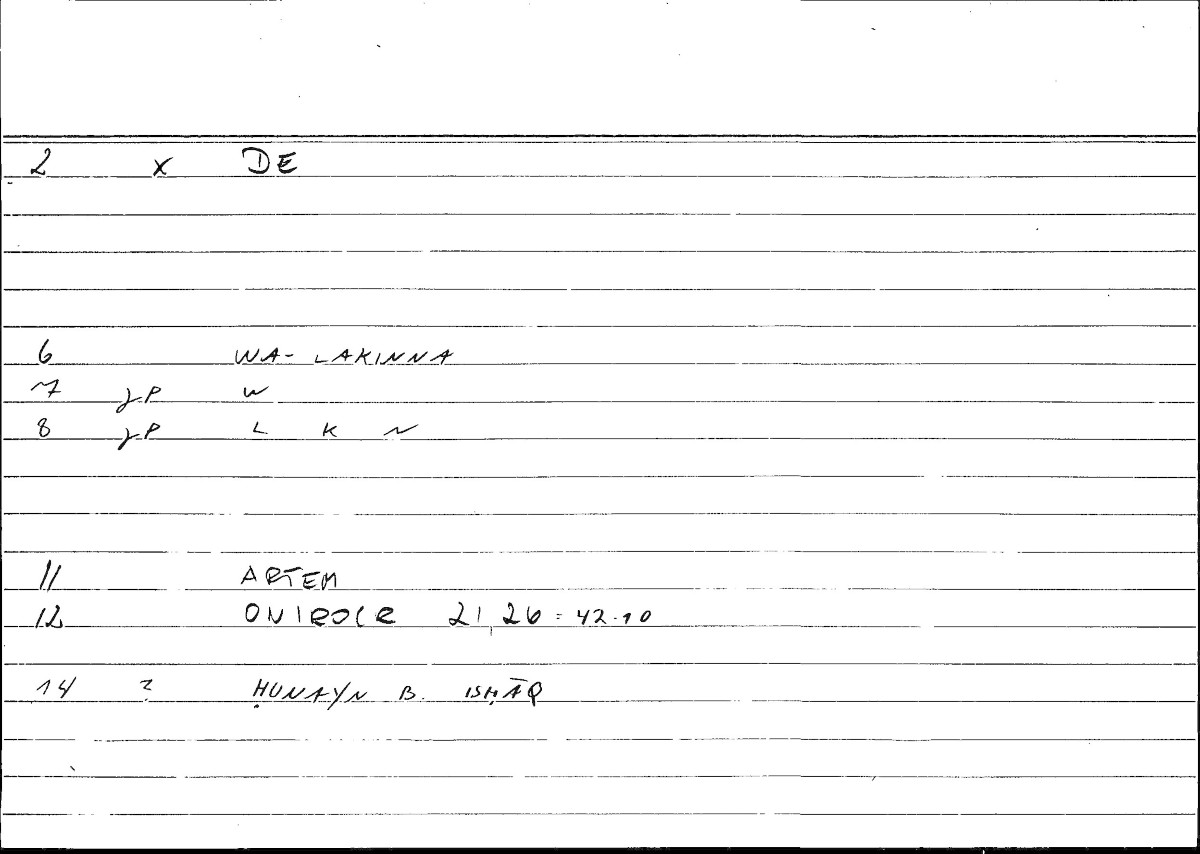 2 x DE
6 WA- LAKINNA
7 γP W
8 γP L K N
11 ARTEM
12 ONIROCR 21,26 = 42.10
14 ? ḤUNAYN B. ISḤĀQ